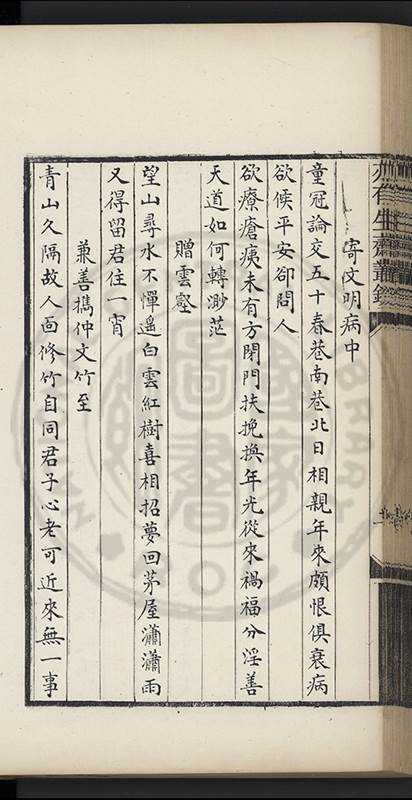 寄文明病中
童冠論交五十春巷南巷北日相親年來頗恨俱衰病
欲候平安卻問人
欲療瘡痍未有方閉門扶挽換年光從來禍福分淫善
天道如何轉渺茫
贈雲壑
望山尋水不憚遙白雲紅樹喜相招夢回茅屋瀟瀟雨
又得留君住一宵
兼善攜仲文竹至
青山久隔故人面修竹自同君子心老可近來無一事